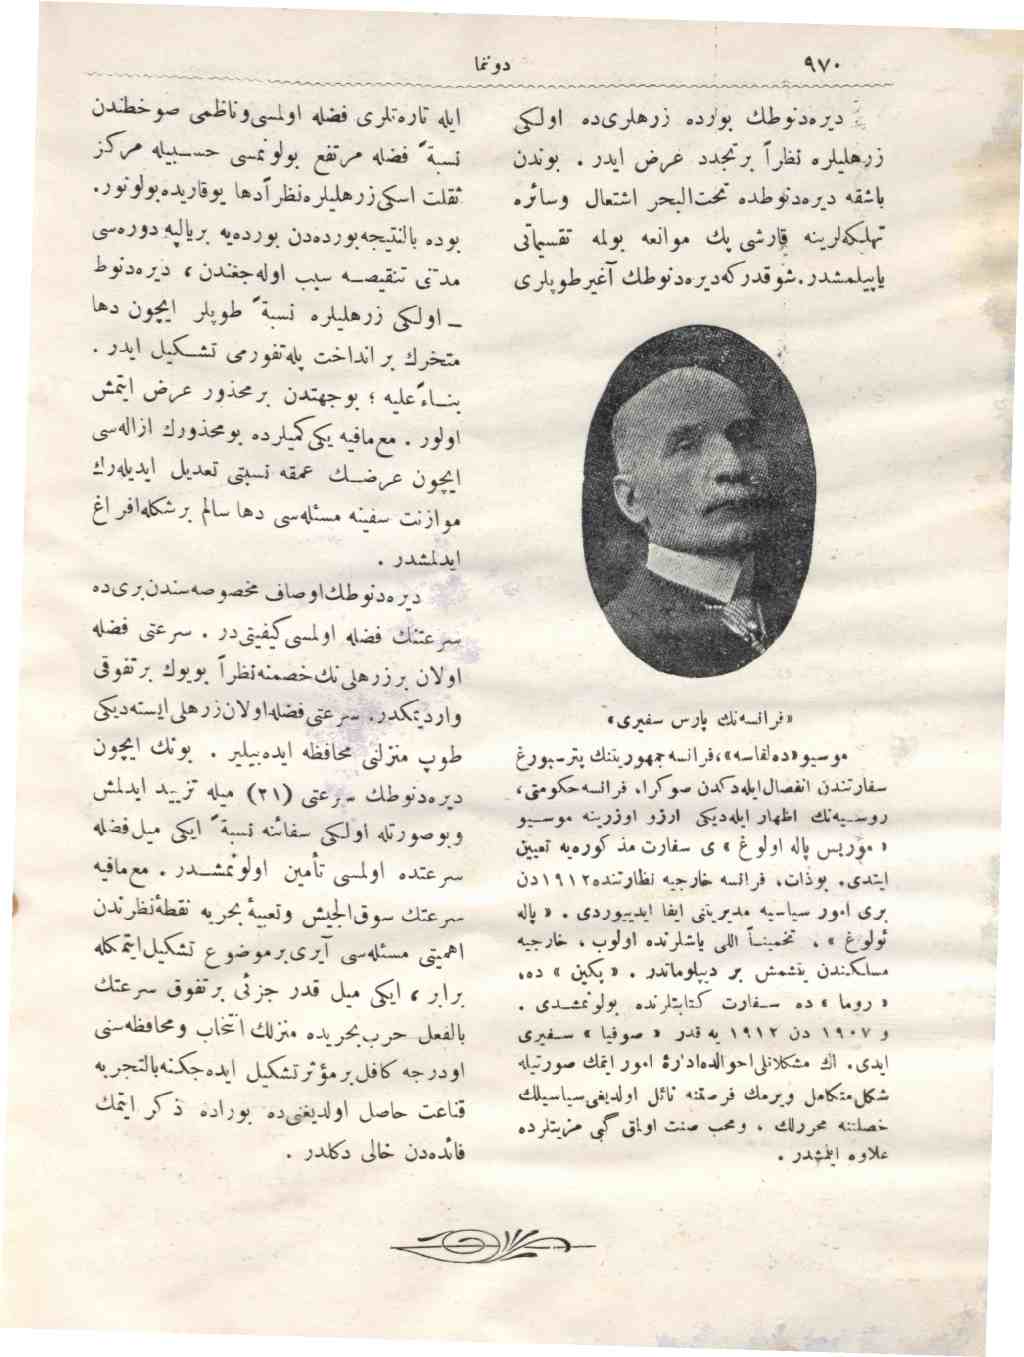 ٩٧٠
دونما
ديره‌دنوطك بوارده زرهلری‌ده اولكی
زرهليلره نظراً برتجدد عرض ايدر . بوندن
باشقه ديره‌دنوطده تحت‌البحر اشتعال وسائره
تهلكه‌لرينه قارشی پك موانعه بولمه تقسيماتی
ياپيلمشدر.شوقدركه‌ديره‌دنوطك آغيرطوپلری
«فرانسه‌نك پارس سفيری»
موسيو«ده‌لقاسه»،فرانسه‌جمهوريتنك پترسبورغ
سفارتندن انفصال‌ايله‌دكدن صوكرا، فرانسه‌حكومتی،
روسيه‌نك اظهار ايله‌ديكی ارزو اوزرينه موسيو
« موريس پاله اولوغ » ی سفارت مذكوره‌يه تعيين
ايتدی. بوذات، فرانسه خارجيه نظارتنده١٩١٢دن
بری امور سياسيه مديريتنی ايفا ايدييوردی . « پاله
ئولوغ » ، تخميناً اللی ياشلرنده اولوب ، خارجيه
مسلكندن يتشمش بر ديپلوماتدر . « پكين » ده،
« روما » ده سفارت كتابتلرنده بولونمشدی .
و ١٩٠٧ دن ١٩١٢ يه قدر « صوفيا » سفيری
ايدی. اك مشكلاتلی‌احوالده‌ادارهٔ امور ايتمك صورتيله
شكل‌متكامل ويرمك فرصتنه نائل اولديغی‌سياسيلك
خصلتنه محررلك ، ومحب صنت اولمق گبی مزيتلرده
علاوه ايلمشدر .
ايله تاره‌تلری فضله اولمسی‌وناظمی صوخطندن
نسبةً فضله مرتفع بولونمسی حسبيله مركز
ثقلت اسكی‌زرهليلره‌نظراً‌دها يوقاريده‌بولونور.
بوده بالنتيجه‌بورده‌دن بورده‌يه بريالپه دوره‌سی
مدتنی تنقيصه سبب اوله‌جغندن ، ديره‌دنوط
ــ اولكی زرهليلره نسبةً طوپلر ايچون دها
متحرك بر انداخت پله‌تفورمی تشكيل ايدر .
بناءً‌عليه ؛ بوجهتدن برمحذور عرض ايتمش
اولور . مع‌مافيه يكی‌گميلرده بومحذورك ازاله‌سی
ايچون عرضك عمقه نسبتی تعديل ايديله‌رك
موازنت سفينه مسئله‌سی دها سالم برشكله‌افراغ
ايدلمشدر .
ديره‌دنوطك‌اوصاف مخصوصه‌سندن‌بری‌ده
سرعتنك فضله اولمسی‌كيفيتی‌در . سرعتی فضله
اولان برزرهلی‌نك‌خصمنه‌نظراً بويوك برتفوقی
وارديمكدر. سرعتی‌فضله‌اولان‌زرهلی‌ايسته‌ديكی
طوپ منزلنی محافظه ايده‌بيلير . بونك ايچون
ديره‌دنوطك سرعتی (٢١) ميله تزييد ايدلمش
وبوصورتله اولكی سفائنه نسبةً ايكی ميل‌فضله
سرعتده اولمسی تأمين اولونمشدر . مع‌مافيه
سرعتك سوق‌الجيش وتعبيهٔ بحريه نقطهٔ‌نظرندن
اهميتی مسئله‌سی آيری‌برموضوع تشكيل‌ايتمكله
برابر ، ايكی ميل قدر جزئی برتفوق سرعتك
بالفعل حرب‌بحريده منزلك انتخاب ومحافظه‌سنی
اودرجه كافل‌برمؤثرتشكيل ايده‌جكنه‌بالتجربه
قناعت حاصل اولديغنی‌ده بوراده ذكر ايتمك
فائده‌دن خالی دكلدر .